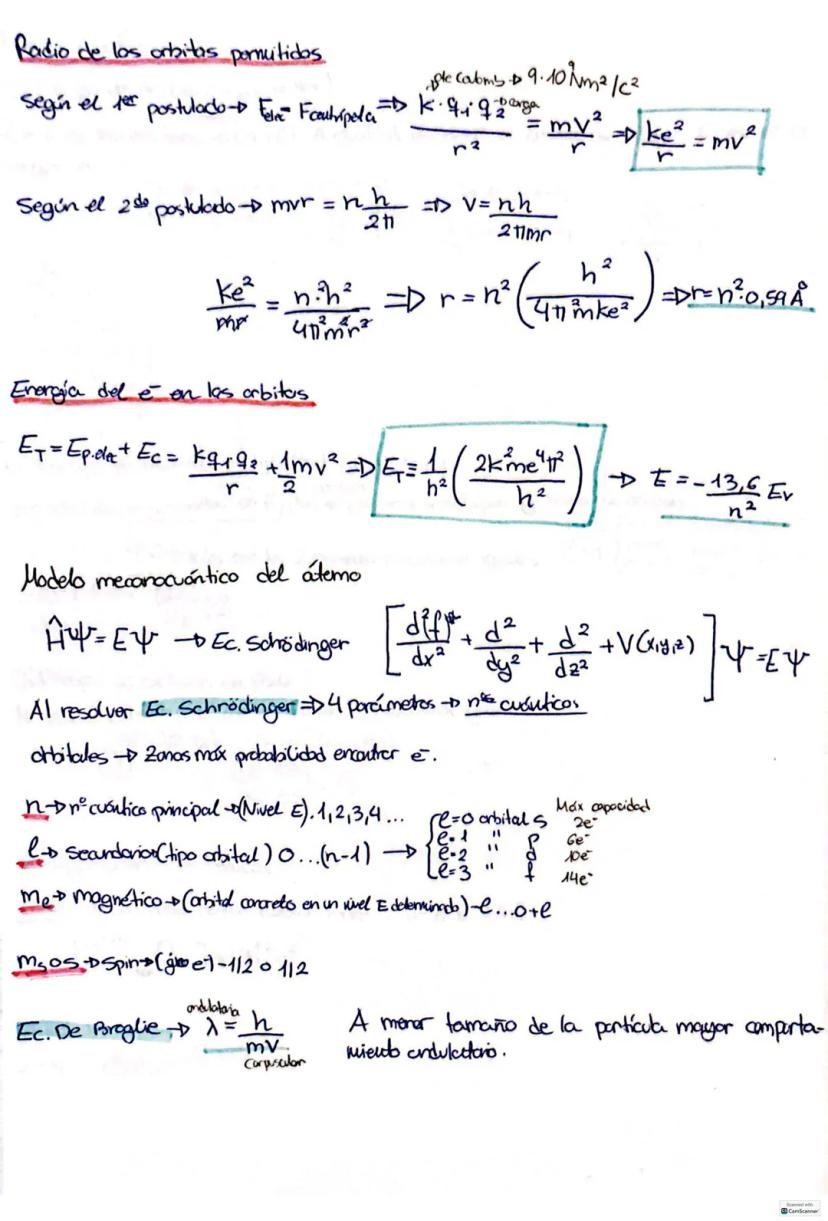 Radio de los orbitas permitidos
cte Coulomb → 9·10⁹ Nm²/c²
Según el 1er postulado → Fele = Fcentrípeta ⇒ k·q₁·q₂/r² = mv²/r ⇒ ke²/r = mv²
carga
Según el 2do postulado → mvr = n h/2π ⇒ v = nh/2πmr
ke²/mr = n²·h²/4π²m²r² ⇒ r = n² (h²/4π²mke²) ⇒ r = n²·0,59 Å
Energía del e⁻ en las orbitas
E_T = Ep.ele + Ec = kq₁q₂/r + 1/2 mv² ⇒ E_T = 1/h² (2k²me⁴π²/h²) → E = -13,6/n² Ev
Modelo mecanocuántico del átomo
ĤΨ = EΨ → Ec. Schödinger [d²(f)/dx² + d²/dy² + d²/dz² + V(x,y,z)] Ψ = EΨ
Al resolver Ec. Schrödinger ⇒ 4 parámetros → nos cuánticos
orbitales → Zonas máx probabilidad encontrar e⁻.
n → nº cuántico principal → (Nivel E). 1, 2, 3, 4 ...
l → Secundario → (tipo orbital) 0 ... (n-1) →
Máx capacidad
l=0 orbital s 2e⁻
l=1 " p 6e⁻
l=2 " d 10e⁻
l=3 " f 14e⁻
ml → magnético → (orbital concreto en un nivel E determinado) -l ... 0 +l
ms o s → Spin → (giro e⁻) -1/2 o 1/2
Ec. De Broglie → λ = h/mv
ondulatoria
corpuscular
A menor tamaño de la partícula mayor comporta-
miento ondulatorio.
Scanned with
CamScanner